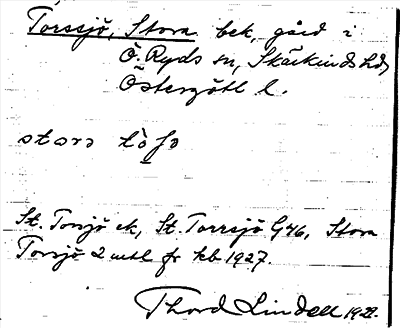 Torssjö, Stora bek, gård i
Ö. Ryds sn, Skärkinds hd,
Östergötl l.
stora tòſo
St. Torsjö ek, St. Torrsjö G46, Stora
Torsjö 2 mtl fr kb 1927.
Thord Lindell 1929.